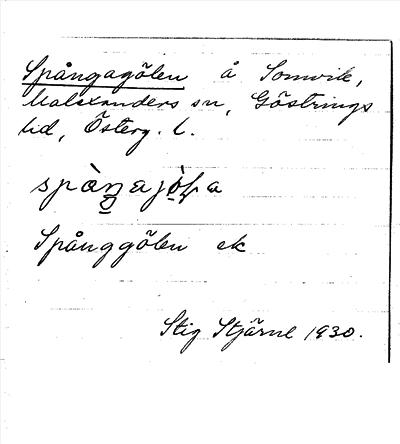 Spångagölen å Somvik,
Malexanders sn, Göstrings
hd, Österg. l.
Spånggölen ek
Stig Stjärne 1930.